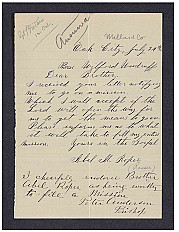 Millard Co
Oak City, July 24th
Pres Wilford Woodruff
Dear Brother.
I received your letter notifying
me to go on a mission
Which I will accept if the
Lord will open the way for
me to get the means to go on
Pleas inform me as to what
it will take to fill my entire
mission. Yours in the Gospel
Abel M. Roper
I cheerfuly endorse Brother
Abel Roper as being worthy
to fill a Mission
Peter Anderson
Bishop